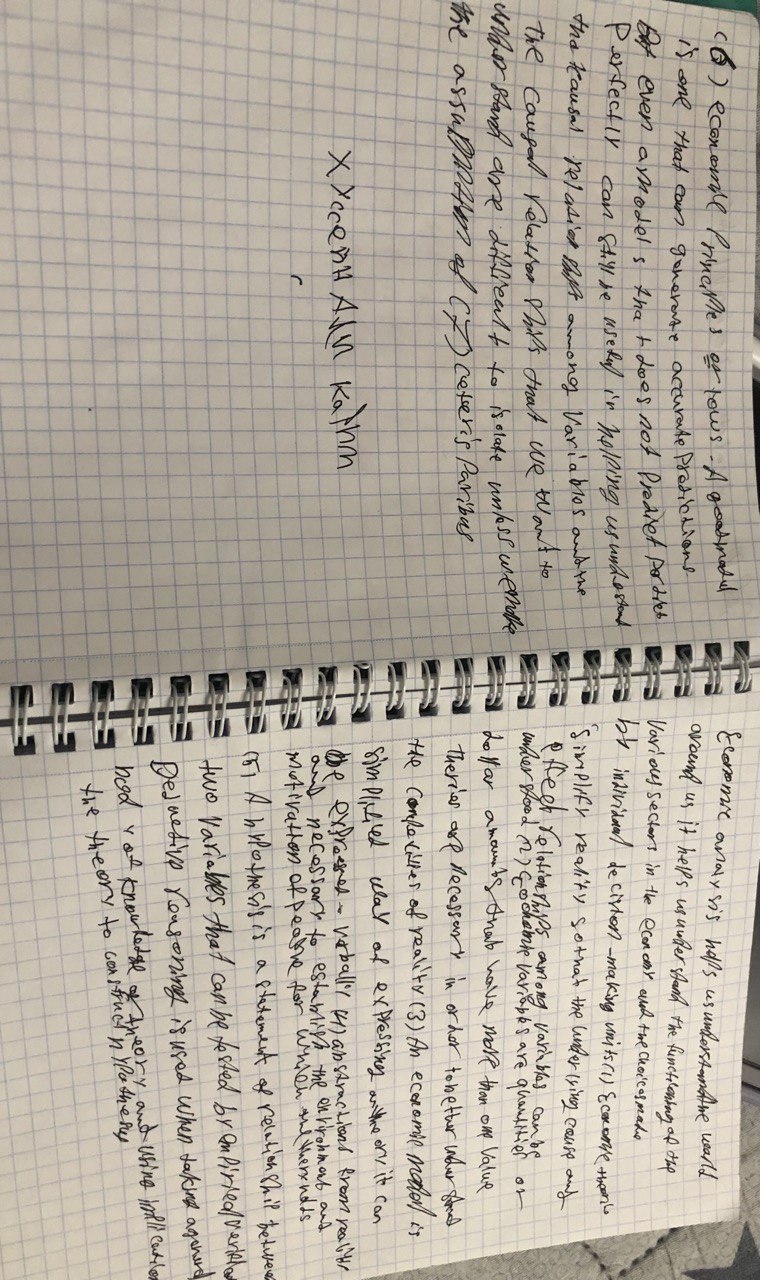 Economic analysis helps us understand the world
around us it helps us understand the functioning of the
various sectors in the economy and the choices made
by individual decision-making units (1) Economic theories
simplify reality so that the underlying cause and
effect relationships among variables can be
understood (2) Economic variables are quantities or
dollar amounts that have more than one value
Theries are necessary in order to better understand
the complexities of reality (3) An economic model is
simplified way of expressing an theory it can
be expresses verbally (4) abstractions from reality
and necessary to establish the enironment and
motivation of people for which
(5) A hypothesis is a statement of relationship between
two variables that can be tested by
Deductive reasoning is used when taking
body of knowledge of theory and using
the theory to construct hypothesis
(6) economic Principles or lows - A good model
is one that can generate accurate Predictions
even a model s that does not Predict
Perfectly can still be useful in helping us understand
the causal relation ship among Variables and the
the causal relation ships that we want to
understand are difficult to isolate unless we make
the assumption of (7) ceteris Paribus